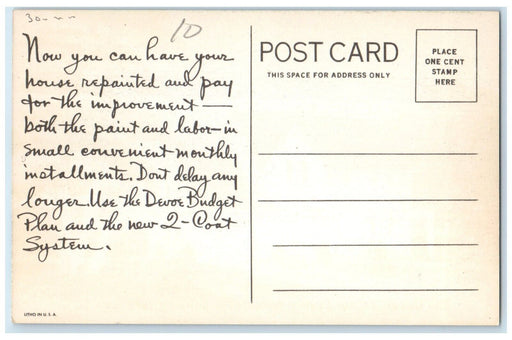 10
Now you can have your
house repainted and pay
for the improvement —
both the paint and labor—in
small convenient monthly
installments. Dont delay any
longer. Use the Devoe Budget
Plan and the new 2-Coat
System.
LITHO IN U.S.A.
POST CARD
THIS SPACE FOR ADDRESS ONLY
PLACE
ONE CENT
STAMP
HERE